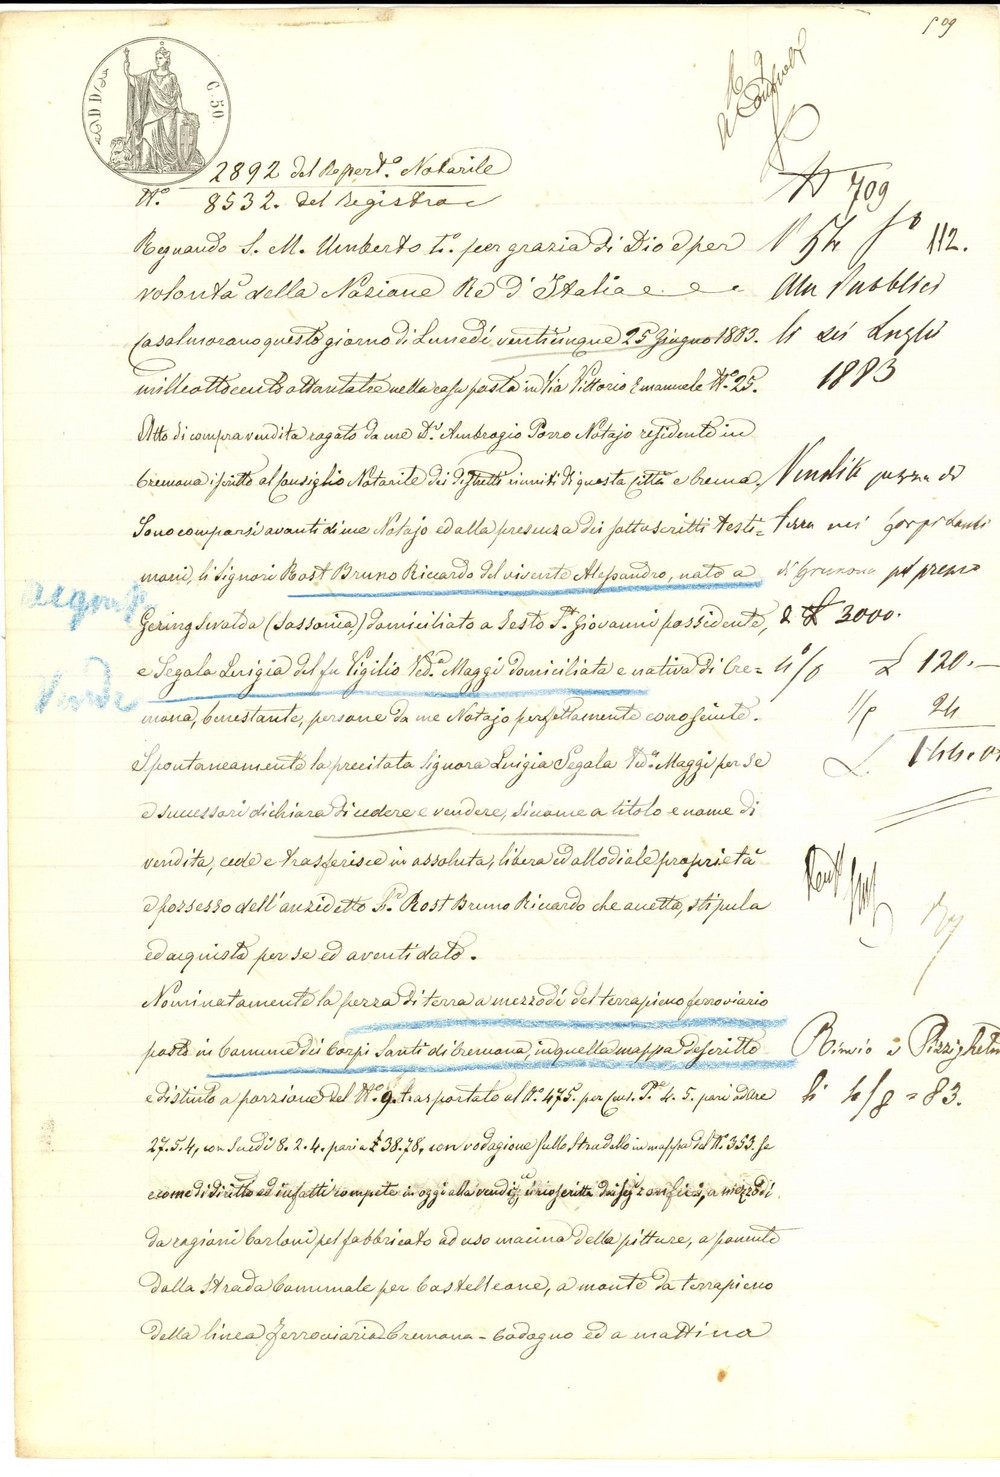 509
C. 50.
2892 del Repert.o Notarile
N.o 8532. del Registro
N 709
Regnando S. M. Umberto I.o per grazia di Dio e per
N 54 f.o 112.
volontà della Nazione Re d'Italia
Atti Pubblici
Casalmorano questo giorno di Lunedì, venticinque 25 Giugno 1883.
li sei Luglio
milleottocentottantatre nella casa posta in Via Vittorio Emanuele N.o 25.
1883
Atto di compra vendita rogato da me D.r Ambrogio Porro Notajo residente in
Cremona iscritto al Consiglio Notarile dei distretti riuniti di questa Città e Crema,
Vendita pezza di
Sono comparsi avanti di me Notajo ed alla presenza dei sottoscritti testi=
terra nei Corpi Santi
moni, li Signori Rost Bruno Riccardo del vivente Alessandro, nato a
di Cremona pel prezzo
Geringswalda (Sassonia,) domiciliato a Sesto S. Giovanni possidente,
di £ 3000.
e Segala Luigia del fu Vigilio Ved.a Maggi domiciliata e nativa di Cre=
4% £ 120.—
mona, benestante, persone da me Notajo perfettamente conosciute.
24
Spontaneamente la precitata Signora Luigia Segala Ved.a Maggi per se
£. 144.0
e successori dichiara di cedere e vendere, siccome a titolo e nome di
vendita, cede e trasferisce in assoluta, libera ed allodiale proprietà
e possesso dell'anzidetto S.r Rost Bruno Riccardo che accetta, stipula
ed acquista per se ed aventi dato.
Nominatamente la pezza di terra a mezzodì del terrapieno ferroviario
posta in Comune dei Corpi Santi di Cremona, in quella mappa descritto
Rinvio a Pizzighettone
e distinto a porzione del N.o 9. trasportato al N.o 475. per Cens. P.e 4. 5. pari ad Are
li 4/8 = 83.
27.5.4, con Scudi 8. 2. 4. pari a £ 38.78, con vodagione sullo Stradello in mappa del N.o 353. se
e come di diritto ed infatti compete in oggi alla a mezzodì
da ragioni Carloni pel fabbricato ad uso macina della pitture, a ponente
dalla Strada Comunale per Castelleone, a monte da terrapieno
della linea ferroviaria Cremona - Codogno ed a mattina